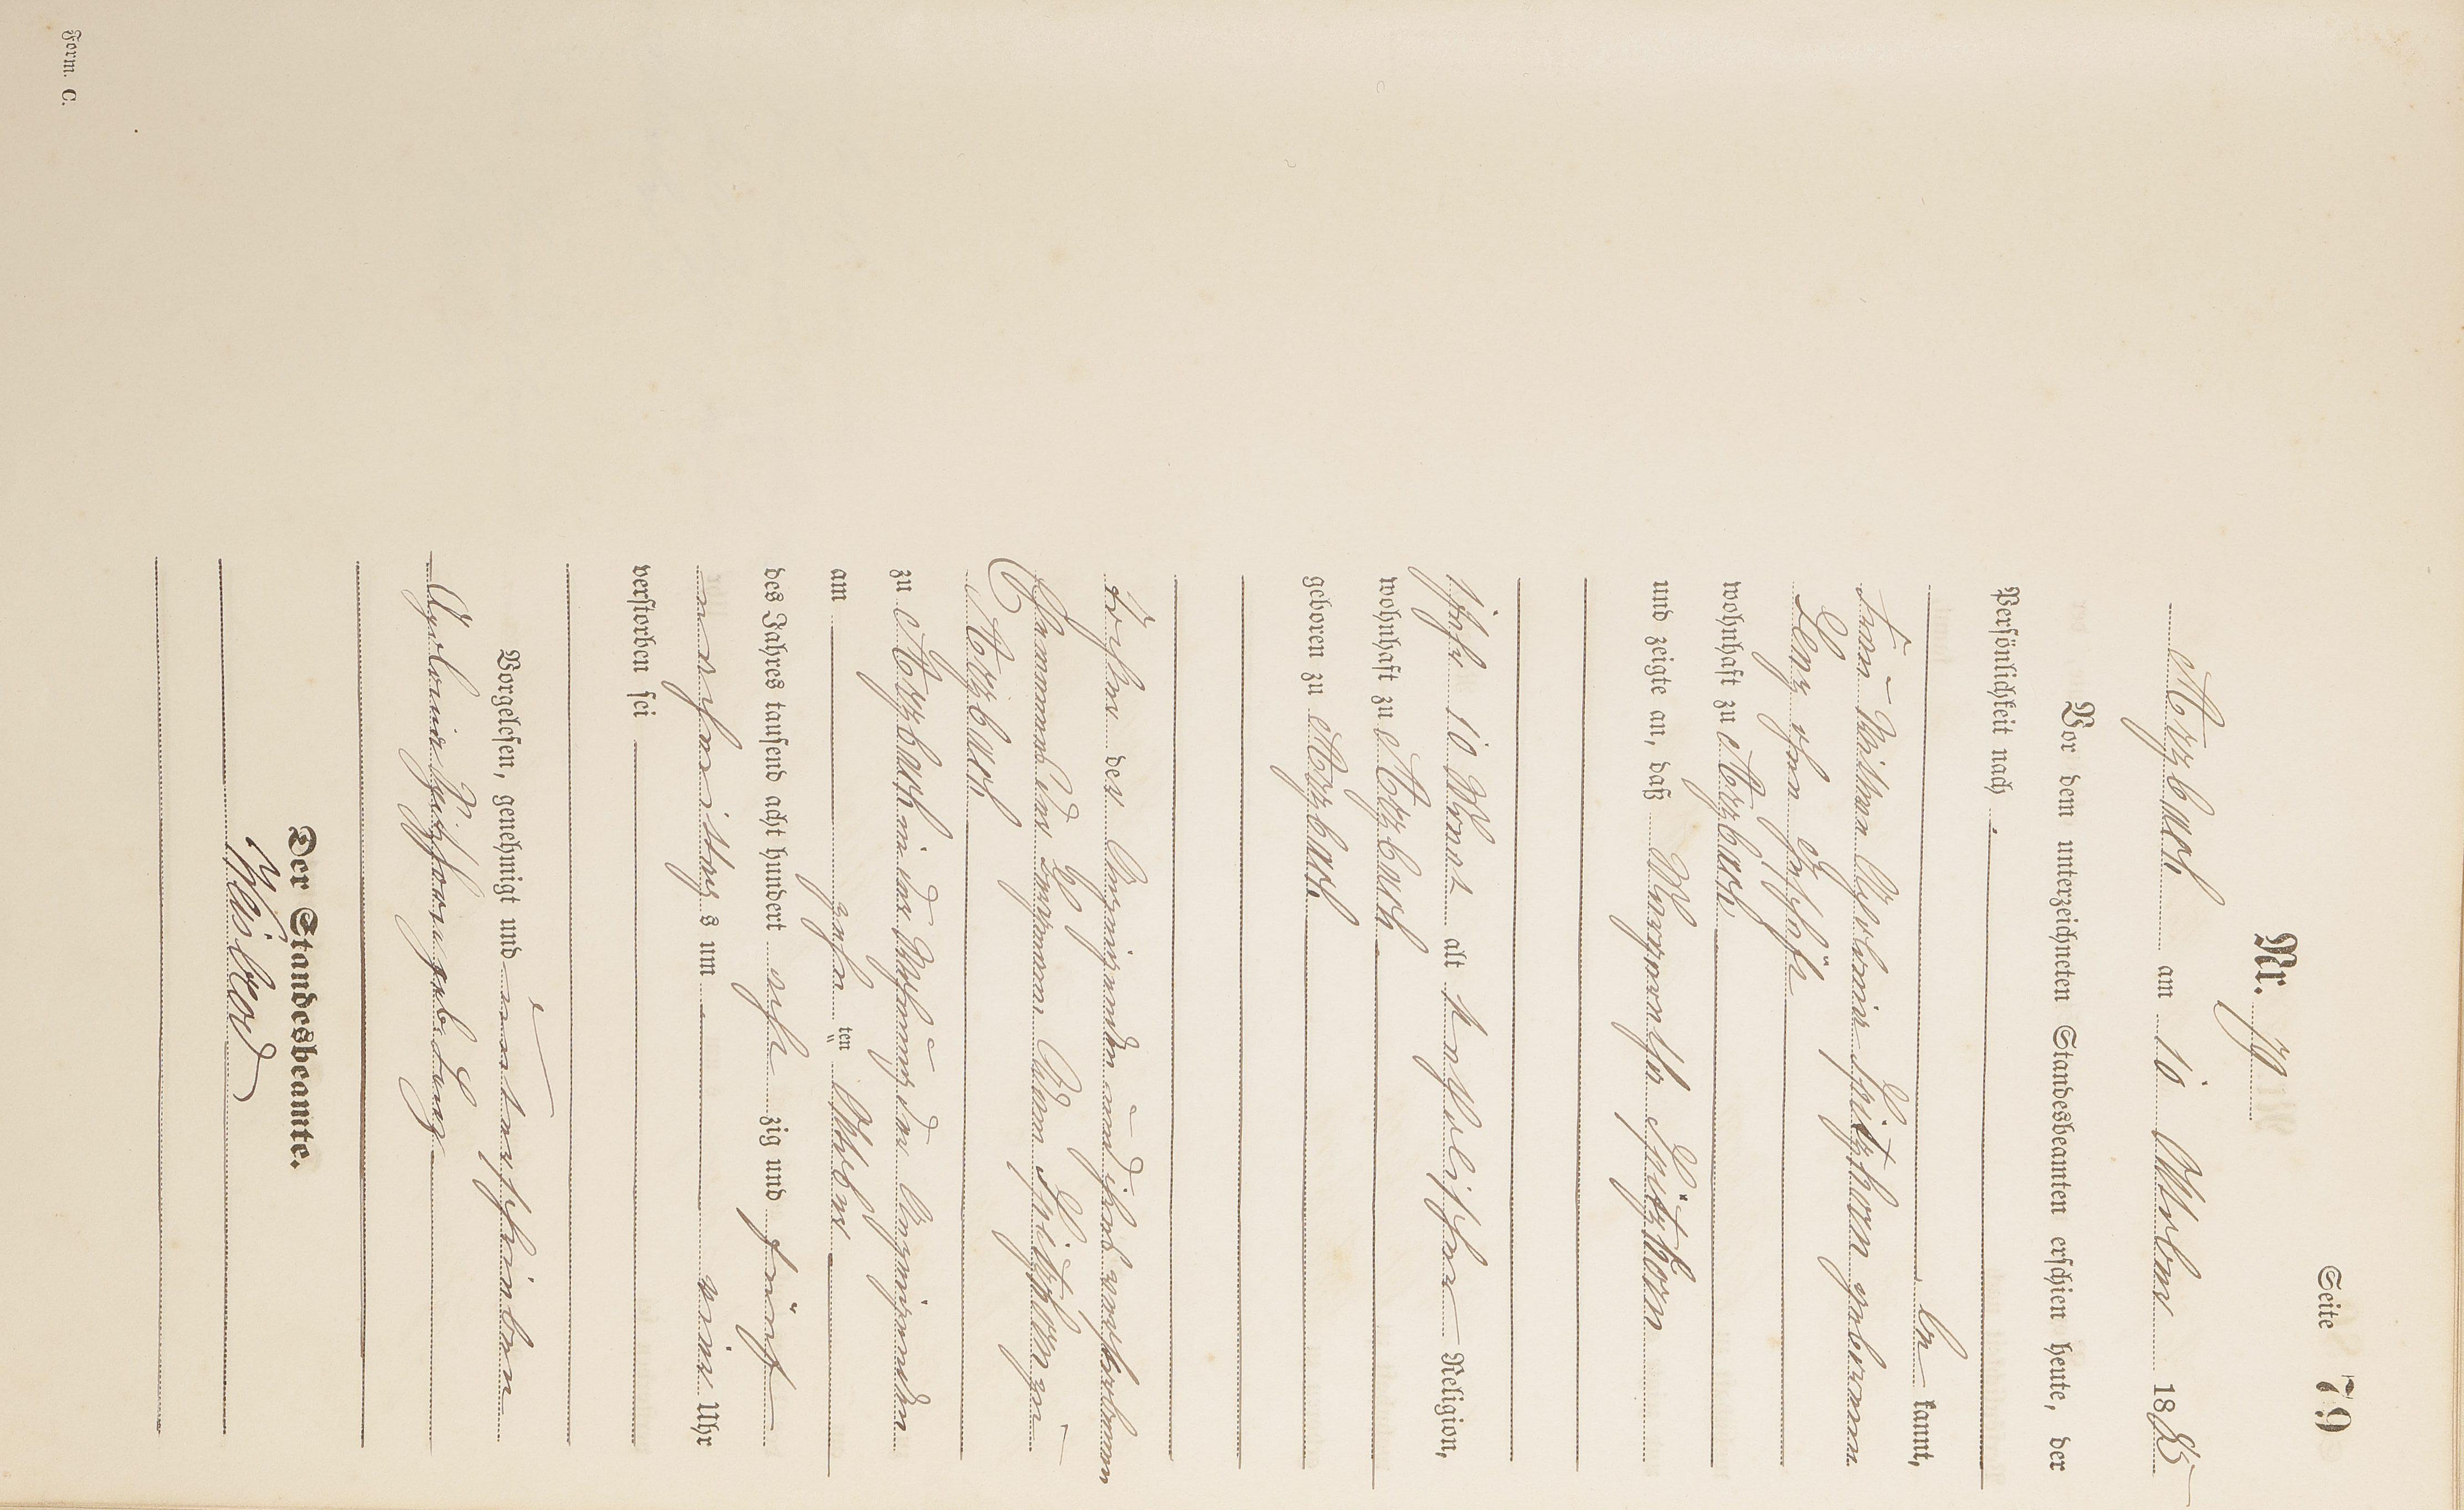 Seite 79
Nr. 79
Arzbach am 10 Oktober 1885
Vor dem unterzeichneten Standesbeamten erschien heute, der
Persönlichkeit nach
be kannt,
Frau Wittwe Apolonia Spitzhorn geborenen
Lanz ohne Geschäft
wohnhaft zu Arzbach
und zeigte an, daß Margaretha Spitzhorn
1 Jahr 10 Monat alt katholischer Religion,
wohnhaft zu Arzbach
geboren zu Arzbach
Tochter der Anzeigenden und ihres verstorbenen
Ehemannes des Adam Spitzhorn zu
Arzbach
zu Arzbach in der Wohnung der Anzeigenden
am zehn ten Oktober
des Jahres tausend acht hundert acht zig und fünf
nachmittags um ein Uhr
verstorben sei
Vorgelesen, genehmigt und unterschrieben
Apolonia Spitzhorn geb Lanz
Der Standesbeamte.
Form. C.